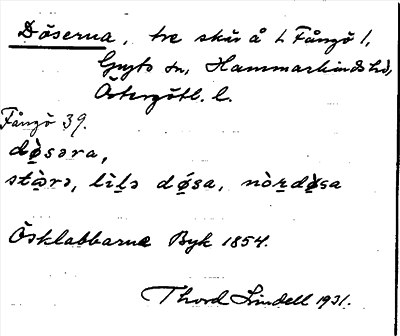 Döserna, tre skär å L Fångö 1,
Gryts sn, Hammarkinds hd,
Östergötl. l.
Fångö 39.
dø̀səra,
stàrə, lìlə dǿsa, nòrdø̀sa
Ösklabbarna Byk 1854.
Thord Lindell 1931.